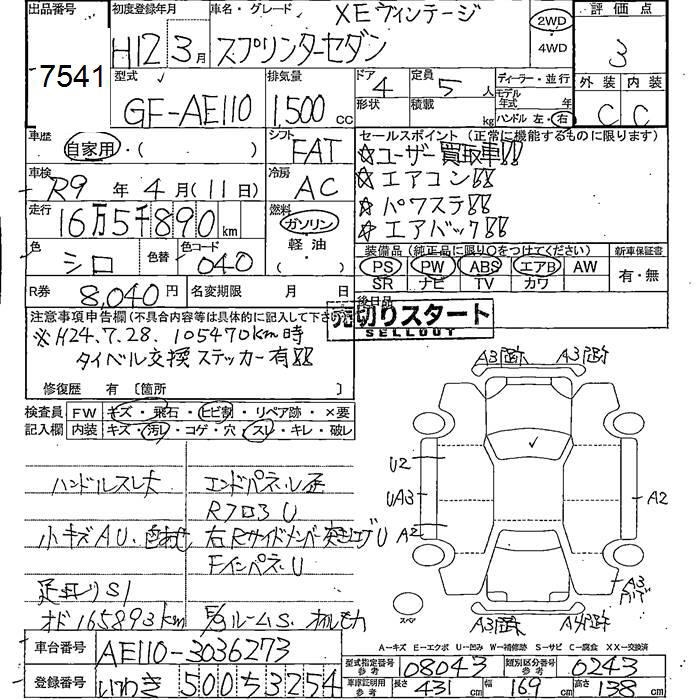 出品番号 初度登録年月 車名・グレード XEヴィンテージ 2WD 評価点
7541 H12 3月 スプリンターセダン 4WD 3
型式 排気量 ドア 4 定員 5人 ディーラー・並行 外装 内装
GF-AE110 1,500cc 形状 積載 kg モデル年式 年 ハンドル 左・右 C C
車歴 自家用・( ) シフト FAT セールスポイント(正常に機能するものに限ります)
☆ユーザー買取車!!
車検 R9年4月(11日) 冷房 AC ☆エアコン!!
☆パワステ!!
走行 16万5千890km 燃料 ガソリン 軽油・( ) ☆エアバック!!
色 シロ 色替 色コード 040 装備品(純正品に限り○をつけてください) 新車保証書
PS PW ABS エアB AW 有・無
SR ナビ TV カワ
R券 8,040円 名変期限 月 日 後日品
注意事項申告欄(不具合内容等は具体的に記入して下さい) 売切りスタート
SELLOUT
※H24.7.28. 105470km時
タイベル交換ステッカー有!!
修復歴 有〔箇所 〕
検査員 FW キズ・飛石・ヒビ割・リペア跡・×要
記入欄 内装 キズ・汚レ・コゲ・穴・スレ・キレ・破レ
ハンドルスレ大 エンドパネ・U
RフロアU
小キズAU・ 右Rサイドメンバー U
FインパネU
S1
オド165893km ルームS
U2
UA3
A2
A2
A3
スペア
車台番号 AE110-3036273
A-キズ E-エクボ U-凹み W-補修跡 S-サビ C-腐食 XX-交換済
型式指定番号 参考 08043 類別区分番号 参考 0243
登録番号 いわき 500 さ 3254 車庫証明用 参考 長さ 431cm 幅 169cm 高さ 138cm